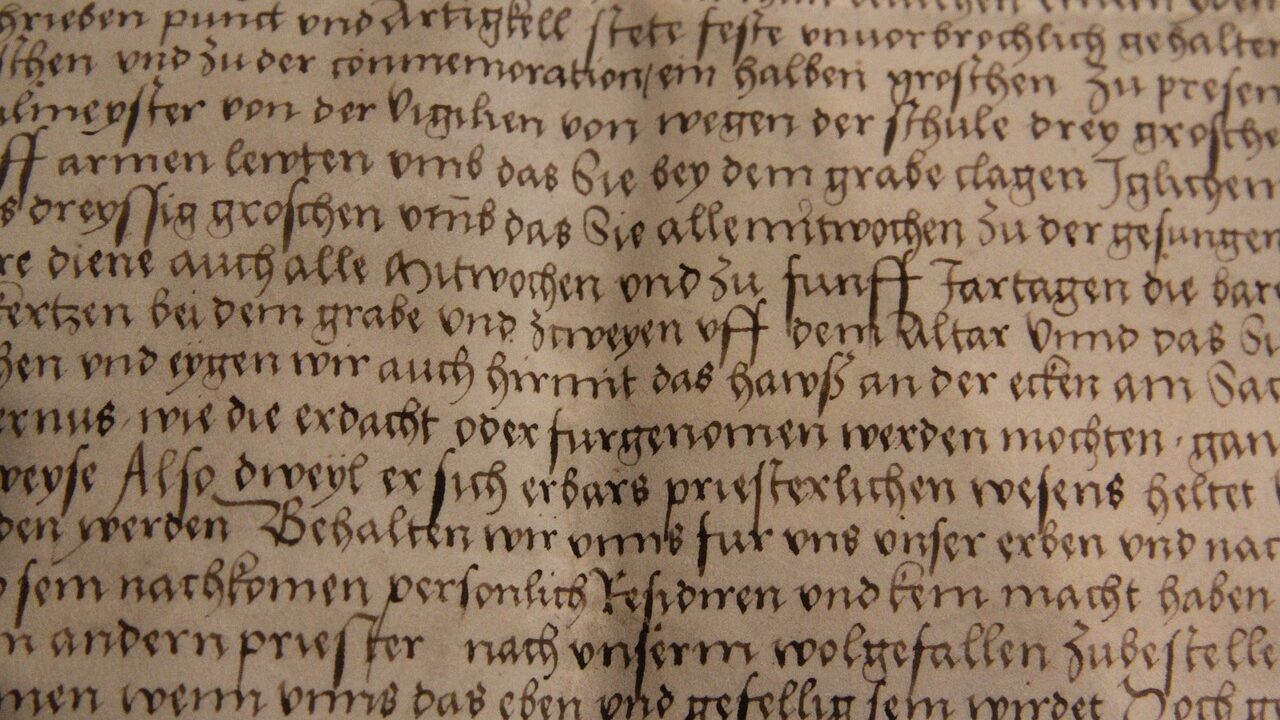 hrieben punct und Artigkell stete feste unvorbrochlich gehalten
schen und zu der commemoration, ein halben groschen zu presen
ulmeyster von der Vigilien von wegen der schule drey grosche
ff armen lewten umb das Sie bey dem grabe clagen Iglichem
s dreyssig groschen umb das Sie alle mitwochen zu der gesungen
re diene auch alle Mitwochen und zu funff Jartagen die bar
kertzen bei dem grabe und zweyen uff dem Altar Unnd das Si
hen und eygen wir auch hirmit das hawß an der ecken am Sac
ernus, wie die erdacht oder furgenomen werden mochten, gan
weyse Also dweyl er sich erbars priesterlichen wesens heltet
den werden Behalten wir unns fur uns unser erben und nac
sein nachkomen personlich Residiren und kein macht haben
n andern priester nach unserm wolgefallen zubestelle
men wenn unns das eben und gefellig sein wirdet Doch g